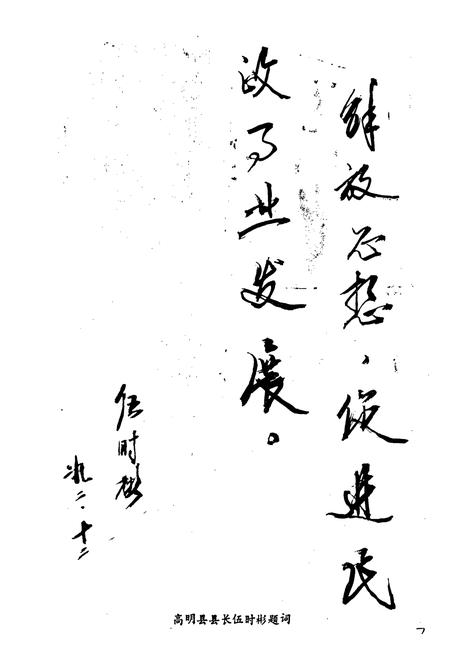 解放思想，促进民
政事业发展。
伍时彬
九二.十二
高明县县长伍时彬题词
7